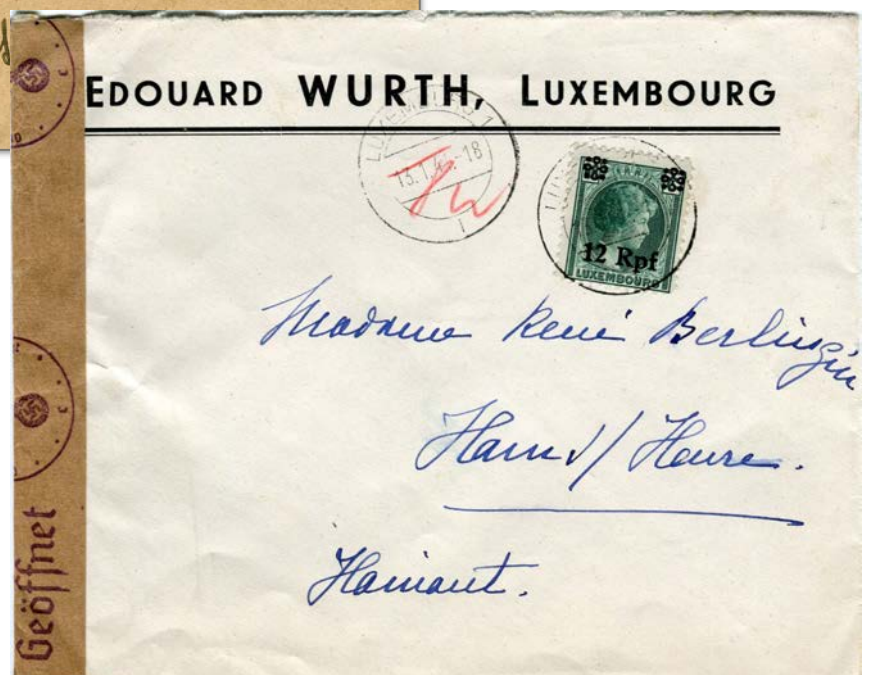 EDOUARD WURTH, LUXEMBOURG
LUXEMBOURG 1
13.1.41.-18
12 Rpf
LUXEMBOURG
Madame René Berlingin
Ham s/ Heure.
Hainaut.
Geöffnet